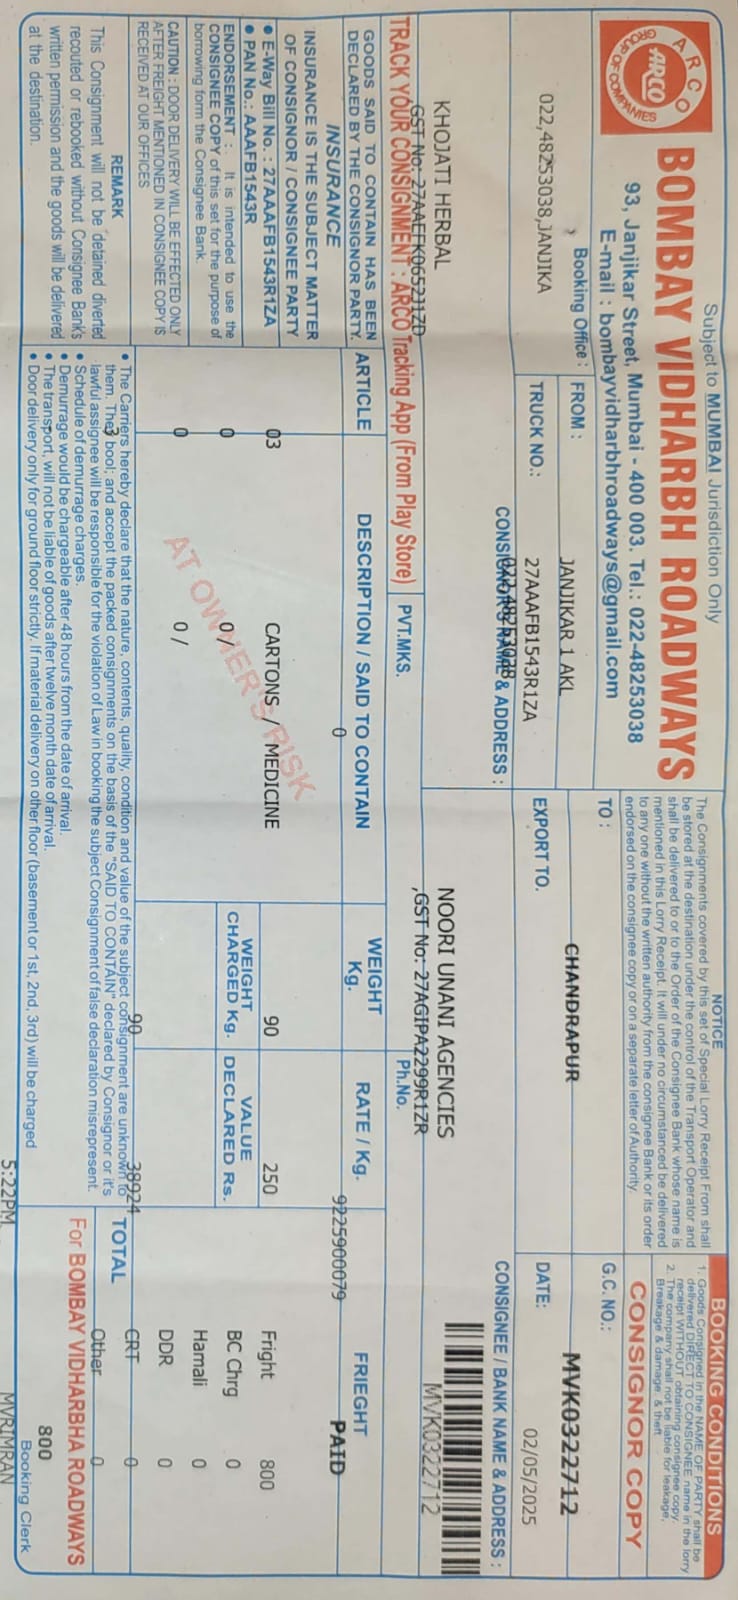 Subject to MUMBAI Jurisdiction Only
ARCO
ARCO
GROUP OF COMPANIES
BOMBAY VIDHARBH ROADWAYS
93, Janjikar Street, Mumbai - 400 003. Tel.: 022-48253038
E-mail : bombayvidharbhroadways@gmail.com
NOTICE
The Consignments covered by this set of Special Lorry Receipt From shall
be stored at the destination under the control of the Transport Operator and
shall be delivered to or to the Order of the Consignee Bank whose name is
mentioned in this Lorry Receipt. It will under no circumstanced be delivered
to any one without the written authority from the consignee Bank or its order
endorsed on the consignee copy or on a separate letter of Authority.
BOOKING CONDITIONS
1. Goods Consigned in the NAME OF PARTY shall be
delivered DIRECT TO CONSIGNEE name in the lorry
receipt WITHOUT obtaining consignee copy.
2. The company shall not be liable for leakage,
Breakage & damage & theft
CONSIGNOR COPY
Booking Office :
022,48253038,JANJIKA
FROM :
JANJIKAR 1 AKL
TO :
CHANDRAPUR
G.C. NO.:
MVK0322712
TRUCK NO.:
27AAAFB1543R1ZA
EXPORT TO.
DATE:
02/05/2025
CONSIGNOR'S NAME & ADDRESS :
022,48253038
CONSIGNEE / BANK NAME & ADDRESS :
KHOJATI HERBAL
GST No: 27AAEFK0652J1ZD
NOORI UNANI AGENCIES
,GST No: 27AGIPA2299R1ZR
MVK0322712
TRACK YOUR CONSIGNMENT : ARCO Tracking App (From Play Store)
PVT.MKS.
Ph.No.
9225900079
GOODS SAID TO CONTAIN HAS BEEN
DECLARED BY THE CONSIGNOR PARTY.
INSURANCE
INSURANCE IS THE SUBJECT MATTER
OF CONSIGNOR / CONSIGNEE PARTY
• E-Way Bill No. : 27AAAFB1543R1ZA
• PAN No.: AAAFB1543R
ENDORSEMENT : It is intended to use the
CONSIGNEE COPY of this set for the purpose of
borrowing form the Consignee Bank.
CAUTION : DOOR DELIVERY WILL BE EFFECTED ONLY
AFTER FREIGHT MENTIONED IN CONSIGNEE COPY IS
RECEIVED AT OUR OFFICES
REMARK
This Consignment will not be detained diverted
recouted or rebooked without Consignee Bank's
written permission and the goods will be delivered
at the destination.
ARTICLE
DESCRIPTION / SAID TO CONTAIN
WEIGHT
Kg.
RATE / Kg.
FRIEGHT
0
PAID
03
CARTONS / MEDICINE
90
250
Fright 800
0
0 /
WEIGHT
CHARGED Kg.
VALUE
DECLARED Rs.
BC Chrg 0
Hamali 0
0
0 /
DDR 0
AT OWNER'S RISK
3
90
38924
CRT 0
Other 0
TOTAL
800
• The Carriers hereby declare that the nature, contents, quality, condition and value of the subject consignment are unknown to
them. The pool; and accept the packed consignments on the basis of the "SAID TO CONTAIN" declared by Consignor or it's
lawful assignee will be responsible for the violation of Law in booking the subject Consignment of false declaration misrepresent.
• Schedule of demurrage charges.
• Demurrage would be chargeable after 48 hours from the date of arrival.
• The transport, will not be liable of goods after twelve month date of arrival.
• Door delivery only for ground floor strictly. If material delivery on other floor (basement or 1st, 2nd, 3rd) will be charged
For BOMBAY VIDHARBHA ROADWAYS
Booking Clerk
5:22PM
MVRIMRAN